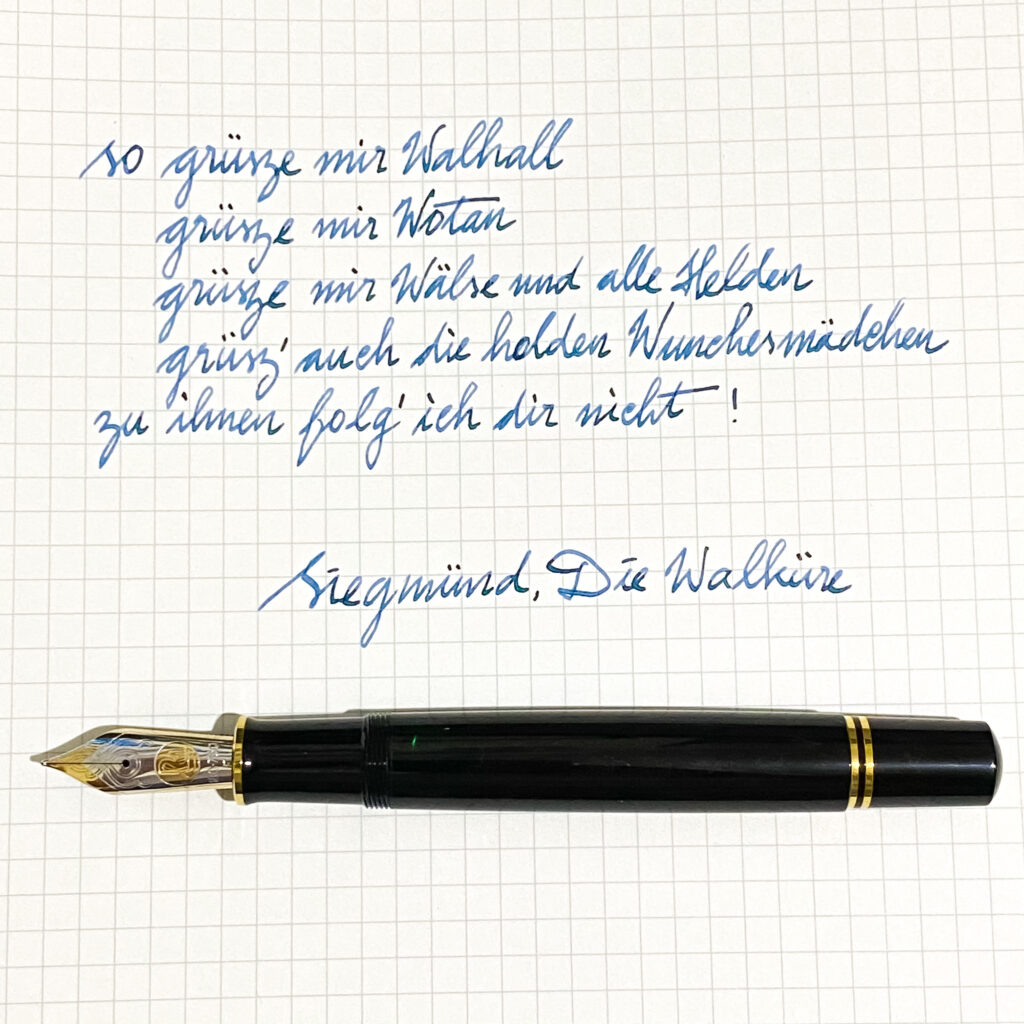 so grüsze mir Walhall
grüsze mir Wotan
grüsze mir Wälse und alle Helden
grüsz' auch die holden Wunchesmädchen
zu ihnen folg' ich dir nicht !
Siegmünd, Die Walküre